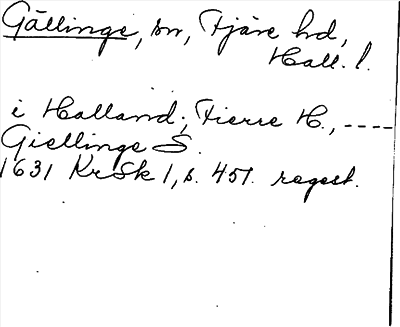 Gällinge, sn, Fjäre hd,
Hall. l.
i Halland; Fierre H., ----
Giellinge S.
1631 KrSk 1, s. 457. regest.